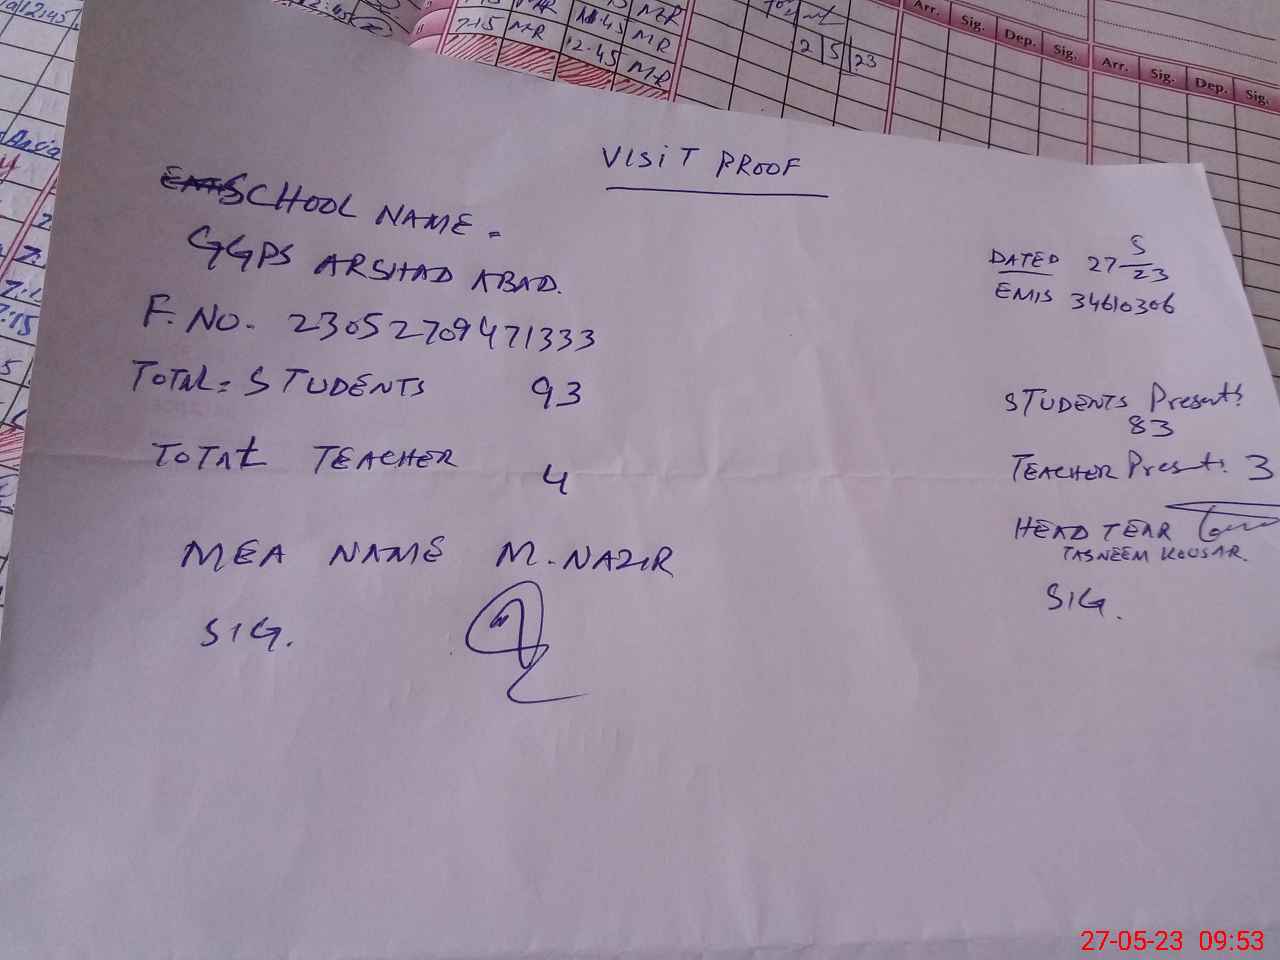 7:15 MR 12.45 MR
MR
2 5 23
Arr. Sig. Dep. Sig.
Arr. Sig. Dep. Sig.
VISIT PROOF
SCHOOL NAME =
GGPS ARSHAD ABAD.
DATED 27 5/23
EMIS 34610306
F. No. 23052709471333
TOTAL = STUDENTS 93
STUDENTS Present:
83
TOTAL TEACHER 4
TEACHER Present: 3
MEA NAME M. NAZIR
HEAD TEAR
TASNEEM KOUSAR.
SIG.
SIG.
27-05-23 09:53